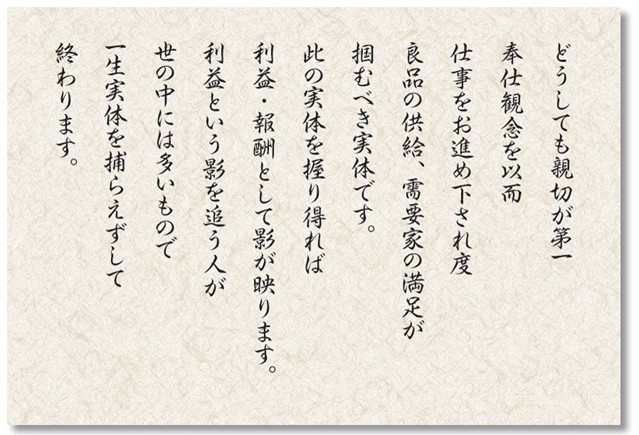 どうしても親切が第一
奉仕観念を以而
仕事をお進め下され度
良品の供給、需要家の満足が
掴むべき実体です。
此の実体を握り得れば
利益・報酬として影が映ります。
利益という影を追う人が
世の中には多いもので
一生実体を捕らえずして
終わります。